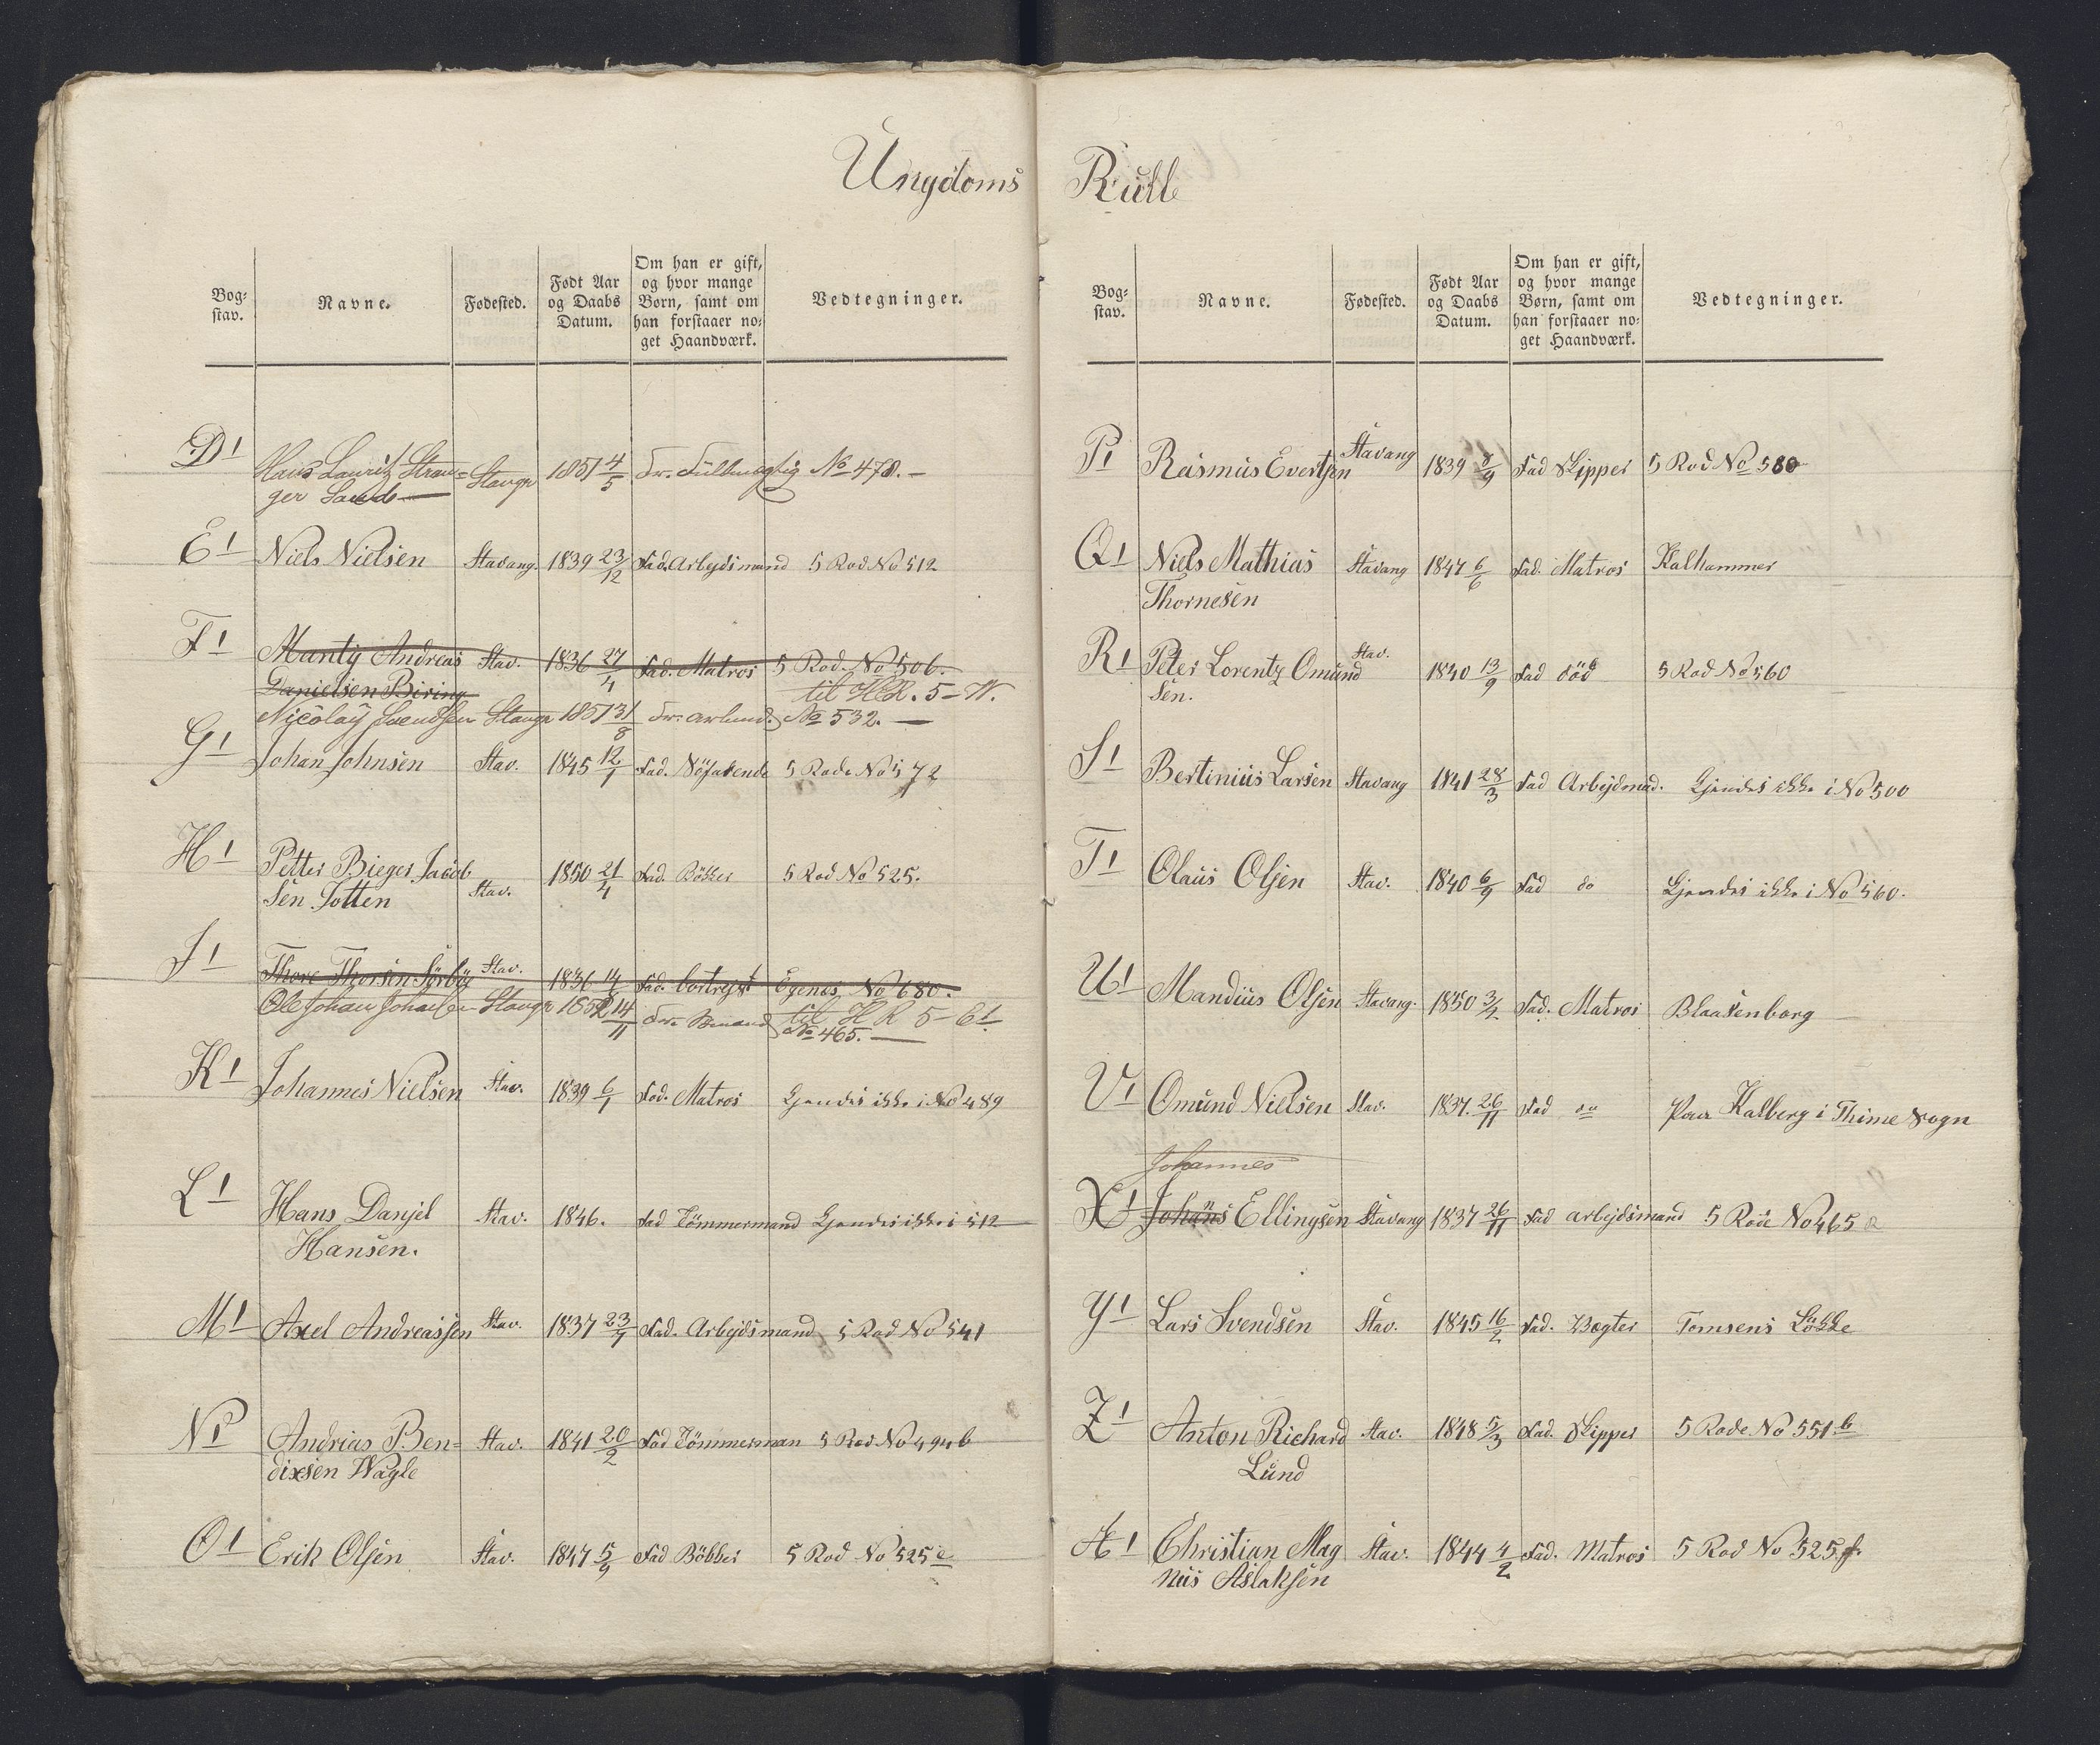 Ungdoms Rulle
Bog-
stav.
Navne.
Fødested.
Født Aar
og Daabs
Datum.
Om han er gift,
og hvor mange
Børn, samt om
han forstaaer no-
get Haandværk.
Vedtegninger.
D1 Hans Lauritz Stran= Stavgr 1851 4/5 Fr. Fuldmægtig No 478. —
ger Sande
E1 Niels Nielsen Stavang. 1839 23/12 Fad. Arbejdsmand 5 Rod No 512
F1 Andreas Stav. 1836 27/4 Fad. Matros 5 Rod. No 506.
Danielsen Biring til H.R. 5-W.
Nicolay Svendsen Stavgr 1851 31/8 Fr. arbmd. No 532. —
G1 Johan Johnsen Stav. 1845 12/1 Fad. Nöfarende 5 Rode No 572
H1 Petter Bieger Jacob 1850 21/4 Fad. Bökker 5 Rod No 525.
sen Totten Stav.
J1 Thore Thorsen Sörbö Stav. 1836 14/6 Fad. bortrejst Egenes No 680.
Ole Johan Johnsen Stavgr 1852 14/11 Fr. til H R 5-E1.
No 465. —
K1 Johannes Nielsen Stav. 1839 6/1 Fad. Matros Gjendes ikke i No 489
L1 Hans Danjel Stav. 1846. Fad Tömmermand Gjendes ikke i 512
Hansen.
M1 Axel Andreassen Stav. 1837 23/7 Fad. Arbejdsmand 5 Rod No 541
N1 Andrias Ben= Stav. 1841 20/2 Fad Tömmerman 5 Rod No 494 b
dixsen Wagle
O1 Erik Olsen Stav. 1847 5/9 Fad Böbber 5 Rod No 525 e
Bog-
stav.
Navne.
Fødested.
Født Aar
og Daabs
Datum.
Om han er gift,
og hvor mange
Børn, samt om
han forstaaer no-
get Haandværk.
Vedtegninger.
P1 Rasmus Evertsen Stavang 1839 8/9 Fad Skipper 5 Rod No 580
Q1 Niels Mathias Stavang 1847 6/6 Fad. Matros Kalhammer
Thornesen
R1 Peter Lorentz Omund Stav. 1840 13/9 Fad död 5 Rod No 560
sen.
S1 Bertinius Larsen Stavang 1841 28/3 Fad Arbejdsmd. Gjendes ikke i No 500
T1 Olaus Olsen Stav. 1840 6/9 Fad do Gjendes ikke i No 560.
U1 Mandius Olsen Stavang. 1850 3/2 Fad. Matros Blaasenborg
V1 Omund Nielsen Stav. 1837. 26/11 Fad do Paa Kalberg i Thime Sogn
Johannes
X1 Johans Ellingsen Stavang 1837 26/11 Fad arbejdsmand 5 Rode No 465 a
Y1 Lars Svendsen Stav. 1845 16/2 Fad. Vægter Tomsens Lökke
Z1 Anton Richard Stav. 1848 5/3 Fad. Skipper 5 Rode No 551 b
Lund
Æ1 Christian Mag Stav. 1844 4/2 Fad. Matros 5 Rod No 525 f.
nus Aslaksen